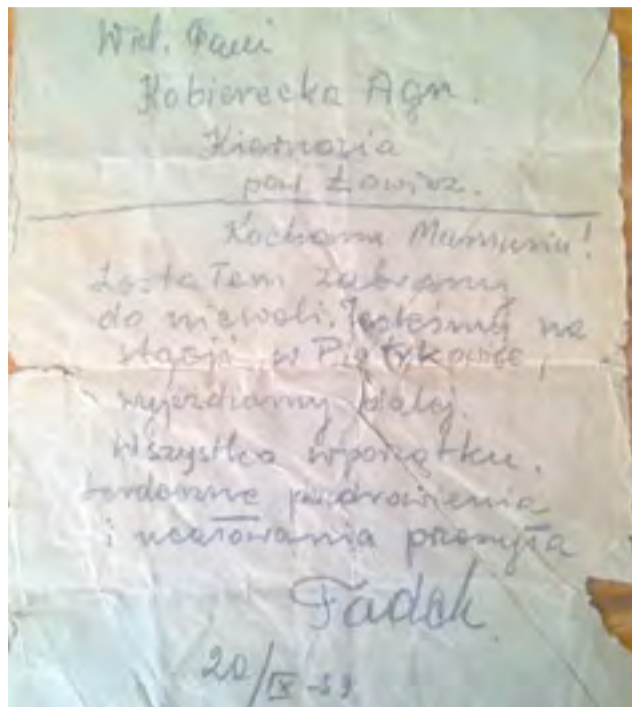 Wiel. Pani
Kobierecka Agn.
Kiernozia
pow. Łowicz.
Kochana Mamusiu!
Zostałem zabrany
do niewoli. Jesteśmy na
stacji w Piotrkowie,
wyjeżdżamy dalej.
Wszystko wporządku.
Serdeczne pozdrowienia
i ucałowania przesyła
Tadek.
20/IX-39